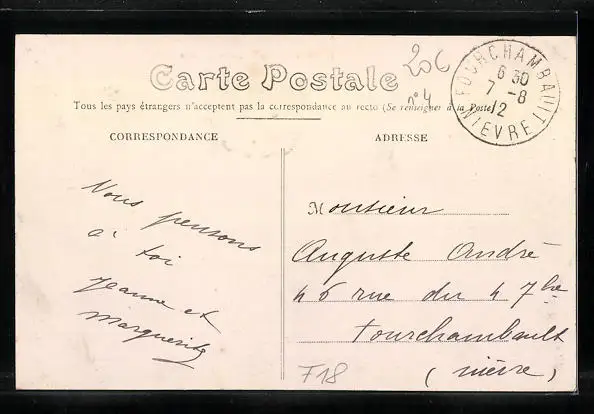 Carte Postale
Tous les pays étrangers n'acceptent pas la correspondance au recto (Se renseigner à la Poste)
CORRESPONDANCE
ADRESSE
20€
n°4
FOURCHAMBAULT
6 30
7 -8
12
NIEVRE
Nous pensons
à toi
Jeanne et
Marguerite
Monsieur
Auguste André
46 rue du 47
fourchambault
(nièvre)
F18